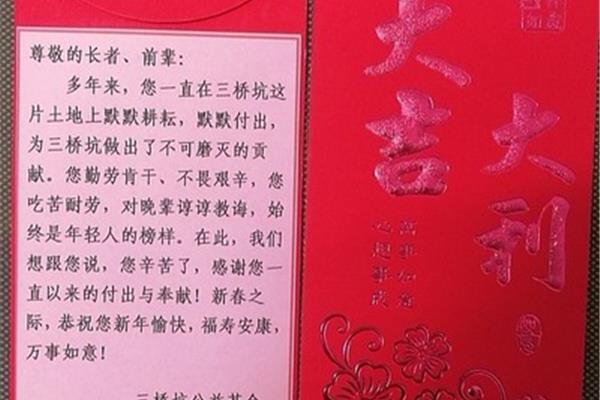 尊敬的长者、前辈：
多年来，您一直在三桥坑这
片土地上默默耕耘，默默付出，
为三桥坑做出了不可磨灭的贡
献。您勤劳肯干、不畏艰辛，您
吃苦耐劳，对晚辈谆谆教诲，始
终是年轻人的榜样。在此，我们
想跟您说，您辛苦了，感谢您一
直以来的付出与奉献！新春之
际，恭祝您新年愉快，福寿安康，
万事如意！
三桥坑公益基金
大吉
大利
萬事如意
心想事成